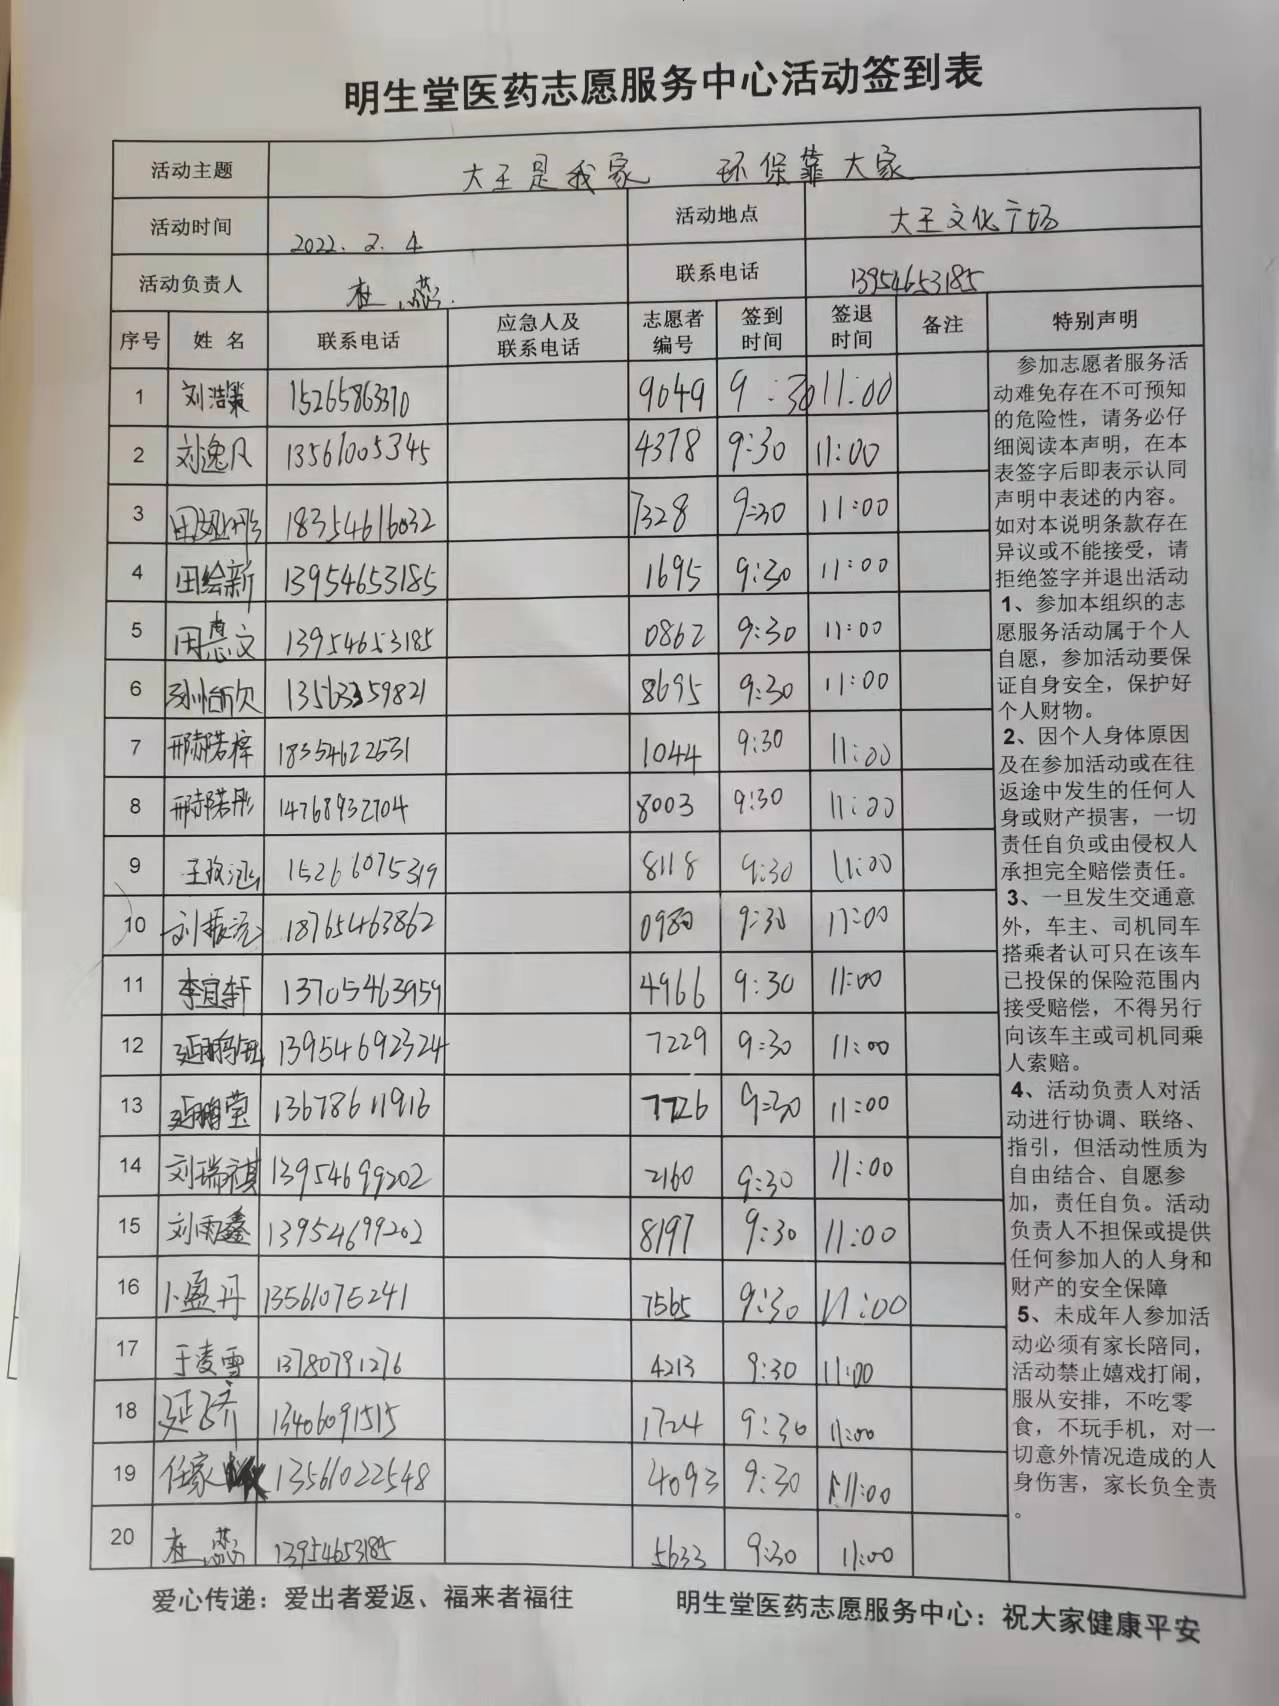 明生堂医药志愿服务中心活动签到表
活动主题 大王是我家 环保靠大家
活动时间 2022.2.4 活动地点 大王文化广场
活动负责人 杜蕊 联系电话 13954653185
序号 姓名 联系电话 应急人及联系电话 志愿者编号 签到时间 签退时间 备注 特别声明
1 刘浩策 15265863370 9049 9:30 11:00
2 刘逸凡 13561005345 4378 9:30 11:00
3 18354616032 7328 9:30 11:00
4 田绘新 13954653185 1695 9:30 11:00
5 田惠文 13954653185 0862 9:30 11:00
6 孙怡欣 13563359821 8695 9:30 11:00
7 18354622531 1044 9:30 11:00
8 14768932704 8003 9:30 11:00
9 15266075319 8118 9:30 11:00
10 刘振 18765463862 9:30 11:00
11 李宜轩 13705463959 4966 9:30 11:00
12 13954692324 7229 9:30 11:00
13 13678611916 7726 9:30 11:00
14 刘瑞祺 13954699202 2160 9:30 11:00
15 刘雨鑫 13954699202 8197 9:30 11:00
16 卜盈丹 13561075241 7565 9:30 11:00
17 于凌雪 13780791276 4213 9:30 11:00
18 13406091515 1724 9:30 11:00
19 任家 13561022548 4093 9:30 11:00
20 杜蕊 13954653185 5633 9:30 11:00
参加志愿者服务活
动难免存在不可预知
的危险性，请务必仔
细阅读本声明，在本
表签字后即表示认同
声明中表述的内容。
如对本说明条款存在
异议或不能接受，请
拒绝签字并退出活动
1、参加本组织的志
愿服务活动属于个人
自愿，参加活动要保
证自身安全，保护好
个人财物。
2、因个人身体原因
及在参加活动或在往
返途中发生的任何人
身或财产损害，一切
责任自负或由侵权人
承担完全赔偿责任。
3、一旦发生交通意
外，车主、司机同车
搭乘者认可只在该车
已投保的保险范围内
接受赔偿，不得另行
向该车主或司机同乘
人索赔。
4、活动负责人对活
动进行协调、联络、
指引，但活动性质为
自由结合、自愿参
加，责任自负。活动
负责人不担保或提供
任何参加人的人身和
财产的安全保障
5、未成年人参加活
动必须有家长陪同，
活动禁止嬉戏打闹，
服从安排，不吃零
食，不玩手机，对一
切意外情况造成的人
身伤害，家长负全责
。
爱心传递：爱出者爱返、福来者福往 明生堂医药志愿服务中心：祝大家健康平安